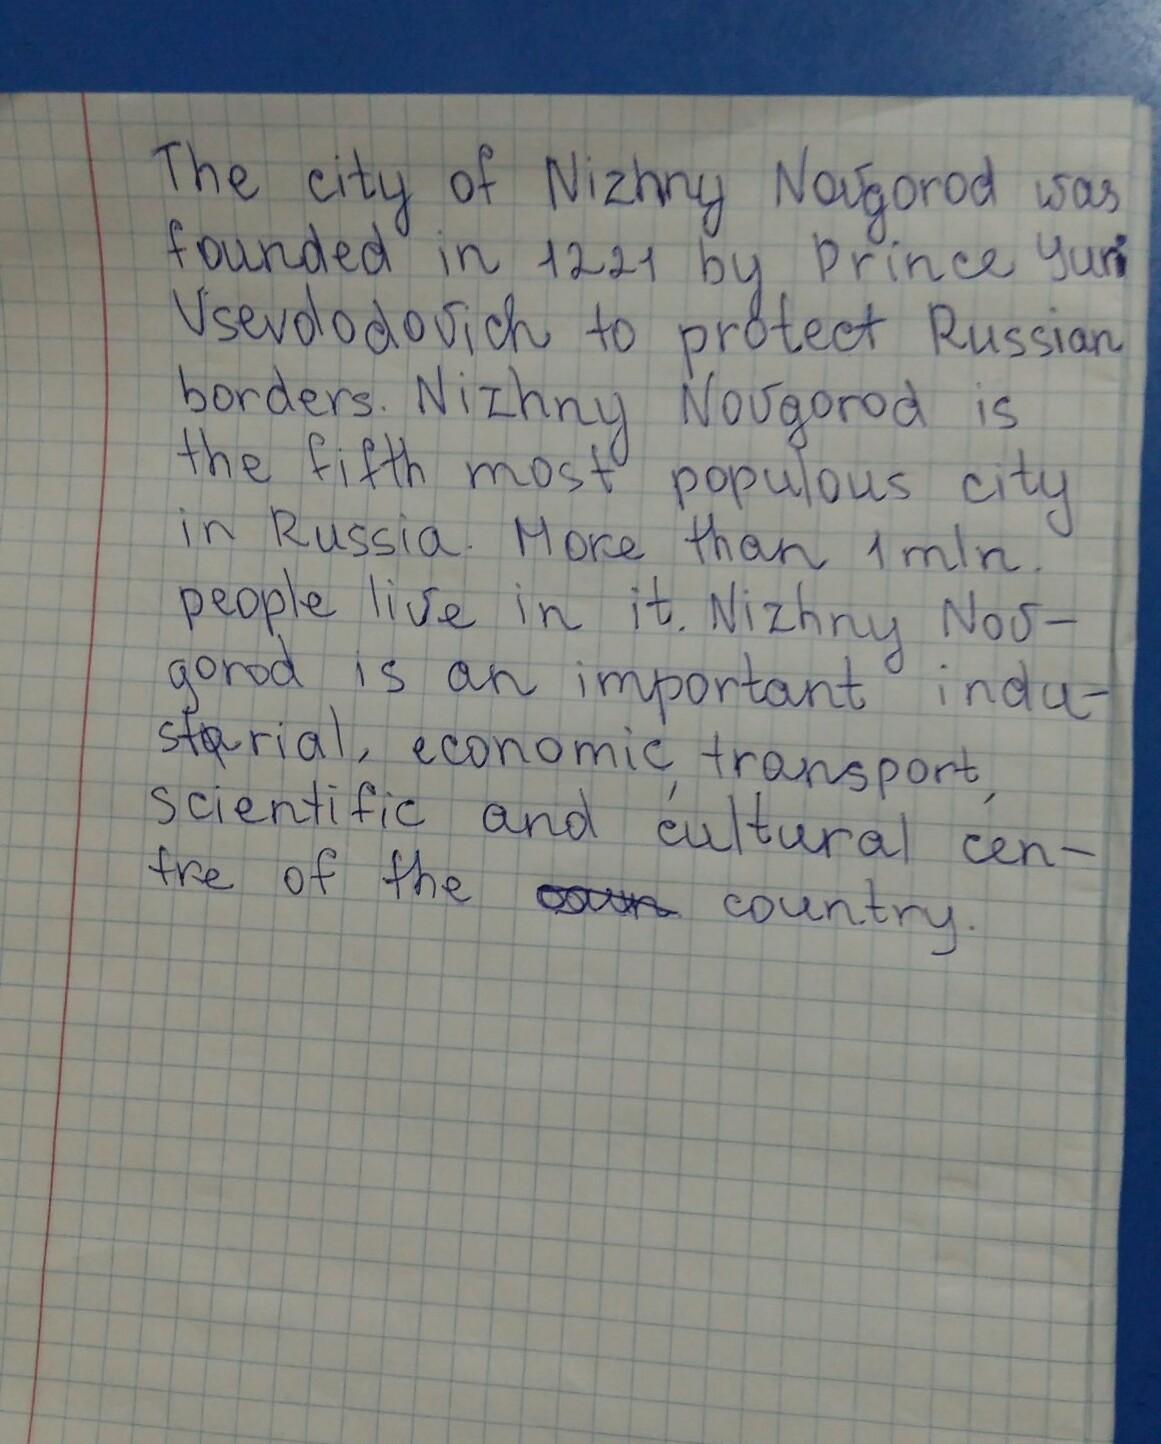 The city of Nizhny Novgorod was
founded in 1221 by Prince Yuri
Vsevdodovich to protect Russian
borders. Nizhny Novgorod is
the fifth most populous city
in Russia. More than 1 mln.
people live in it. Nizhny Nov-
gorod is an important indu-
strial, economic, transport,
scientific and cultural cen-
tre of the country.